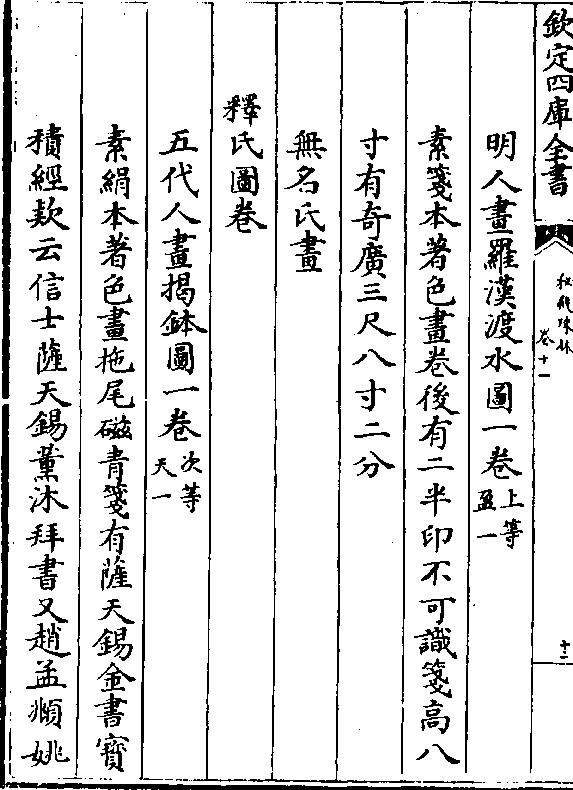 欽定四庫全書
秘殿珠林
卷十一
十二
明人畫羅漢渡水圖一卷上等盈一
素箋本著色畫卷後有二半印不可識箋高八
寸有奇廣三尺八寸二分
無名氏畫
釋氏圖卷
五代人畫揭鉢圖一卷次等天一
素絹本著色畫拖尾磁青箋有薩天錫金書寳
積經款云信士薩天錫薰沐拜書又趙孟頫姚